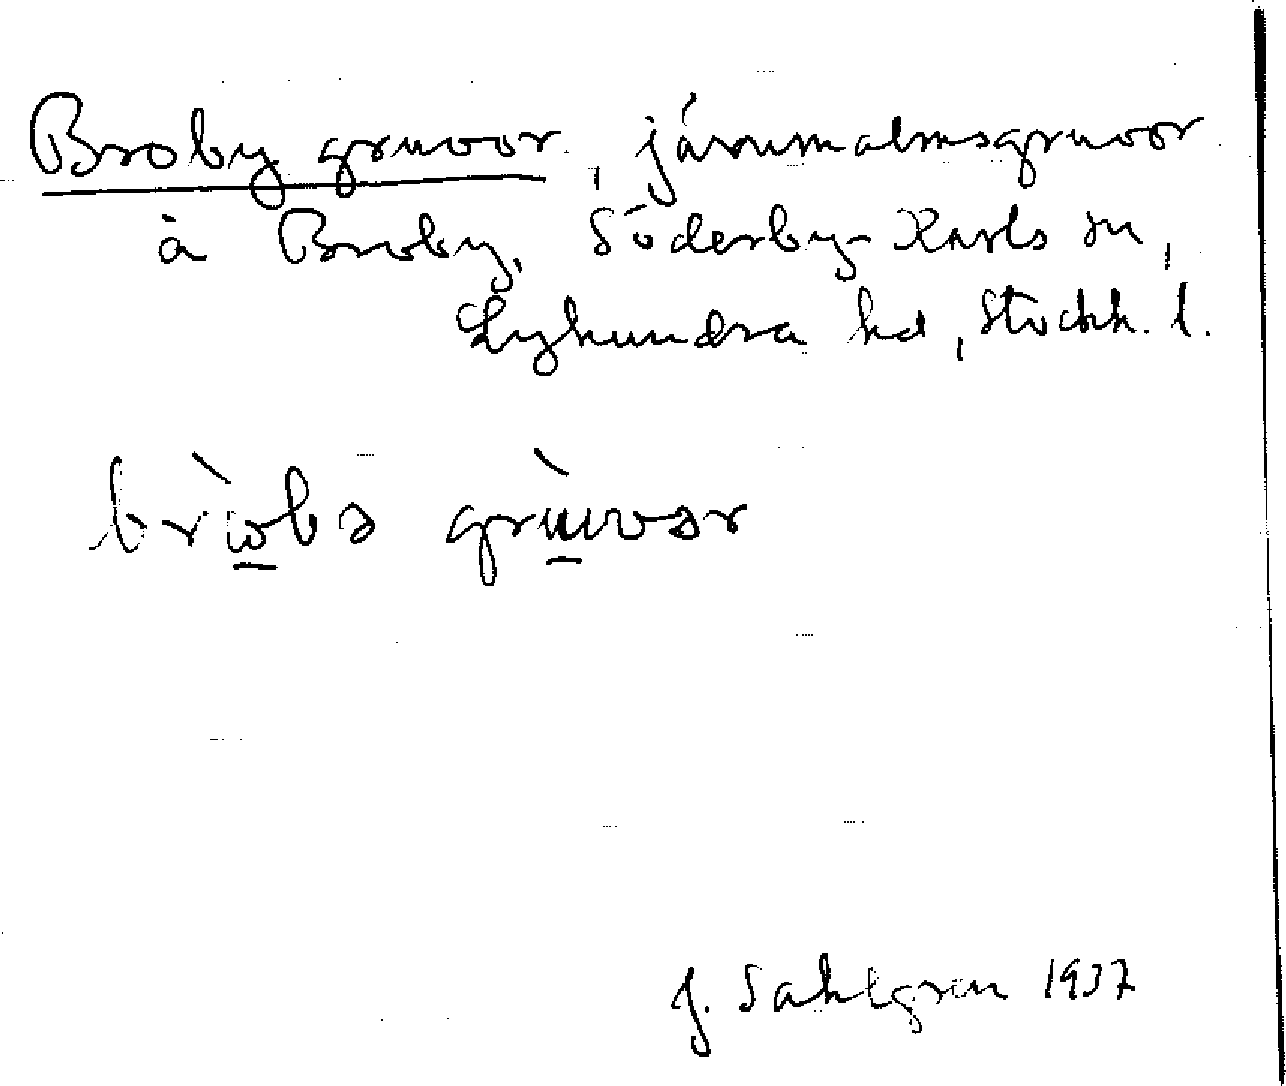 Broby gruvor, järnmalmsgruvor
å Broby, Söderby-Karls sn,
Lyhundra hd, Stockh. l.
brωbə grɯvər
J. Sahlgren 1937